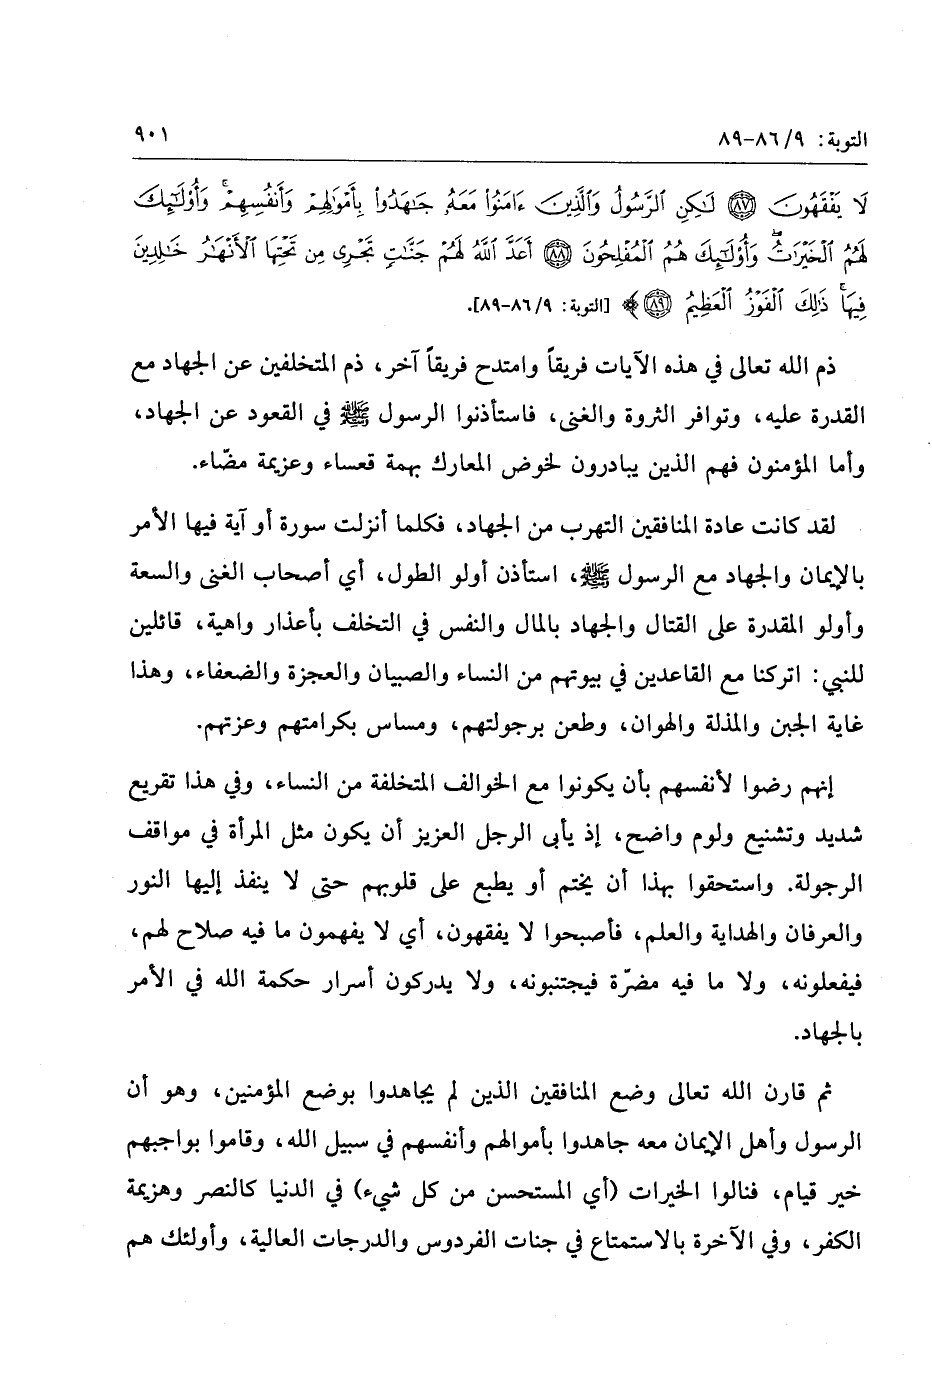 التوبة: ٩/ ٨٦-٨٩ ٩٠١
لَا يَفْقَهُونَ ﴿٨٧﴾ لَٰكِنِ ٱلرَّسُولُ وَٱلَّذِينَ ءَامَنُوا۟ مَعَهُۥ جَٰهَدُوا۟ بِأَمْوَٰلِهِمْ وَأَنفُسِهِمْ ۚ وَأُو۟لَٰٓئِكَ
لَهُمُ ٱلْخَيْرَٰتُ ۖ وَأُو۟لَٰٓئِكَ هُمُ ٱلْمُفْلِحُونَ ﴿٨٨﴾ أَعَدَّ ٱللَّهُ لَهُمْ جَنَّٰتٍ تَجْرِى مِن تَحْتِهَا ٱلْأَنْهَٰرُ خَٰلِدِينَ
فِيهَا ۚ ذَٰلِكَ ٱلْفَوْزُ ٱلْعَظِيمُ ﴿٨٩﴾ ﴾ [التوبة: ٩/ ٨٦-٨٩].
ذم الله تعالى في هذه الآيات فريقاً وامتدح فريقاً آخر، ذم المتخلفين عن الجهاد مع
القدرة عليه، وتوافر الثروة والغنى، فاستأذنوا الرسول ﷺ في القعود عن الجهاد،
وأما المؤمنون فهم الذين يبادرون لخوض المعارك بهمة قعساء وعزيمة مضّاء.
لقد كانت عادة المنافقين التهرب من الجهاد، فكلما أنزلت سورة أو آية فيها الأمر
بالإيمان والجهاد مع الرسول ﷺ، استأذن أولو الطول، أي أصحاب الغنى والسعة
وأولو المقدرة على القتال والجهاد بالمال والنفس في التخلف بأعذار واهية، قائلين
للنبي: اتركنا مع القاعدين في بيوتهم من النساء والصبيان والعجزة والضعفاء، وهذا
غاية الجبن والمذلة والهوان، وطعن برجولتهم، ومساس بكرامتهم وعزتهم.
إنهم رضوا لأنفسهم بأن يكونوا مع الخوالف المتخلفة من النساء، وفي هذا تقريع
شديد وتشنيع ولوم واضح، إذ يأبى الرجل العزيز أن يكون مثل المرأة في مواقف
الرجولة. واستحقوا بهذا أن يختم أو يطبع على قلوبهم حتى لا ينفذ إليها النور
والعرفان والهداية والعلم، فأصبحوا لا يفقهون، أي لا يفهمون ما فيه صلاح لهم،
فيفعلونه، ولا ما فيه مضرّة فيجتنبونه، ولا يدركون أسرار حكمة الله في الأمر
بالجهاد.
ثم قارن الله تعالى وضع المنافقين الذين لم يجاهدوا بوضع المؤمنين، وهو أن
الرسول وأهل الإيمان معه جاهدوا بأموالهم وأنفسهم في سبيل الله، وقاموا بواجبهم
خير قيام، فنالوا الخيرات (أي المستحسن من كل شيء) في الدنيا كالنصر وهزيمة
الكفر، وفي الآخرة بالاستمتاع في جنات الفردوس والدرجات العالية، وأولئك هم